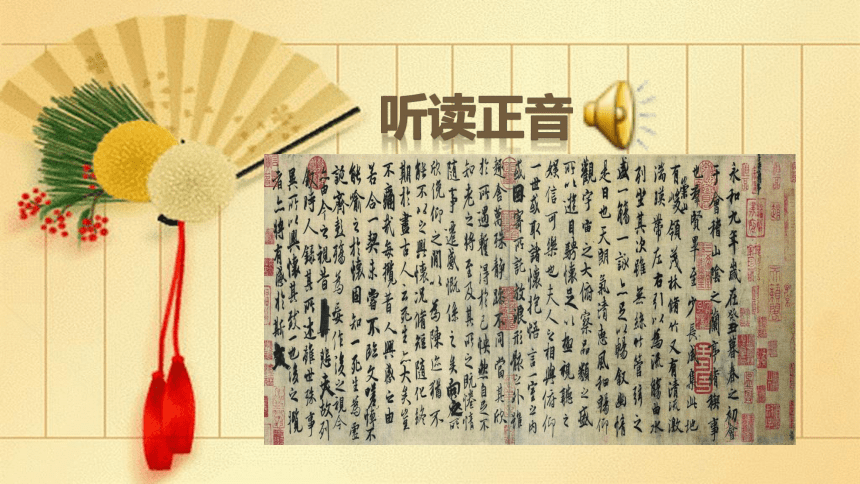 听读正音
永和九年歲在癸丑暮春之初會
于會稽山陰之蘭亭脩稧事
也羣賢畢至少長咸集此地
有崇山峻領茂林脩竹又有清流激
湍暎帶左右引以為流觴曲水
列坐其次雖無絲竹管弦之
盛一觴一詠亦足以暢敘幽情
是日也天朗氣清惠風和暢仰
觀宇宙之大俯察品類之盛
所以遊目騁懷足以極視聽之
娛信可樂也夫人之相與俯仰
一世或取諸懷抱悟言一室之內
或因寄所託放浪形骸之外雖
趣舍萬殊靜躁不同當其欣
於所遇蹔得於己怏然自足不
知老之將至及其所之既惓情
隨事遷感慨係之矣向之所
欣俛仰之間以為陳迹猶不
能不以之興懷況脩短隨化終
期於盡古人云死生亦大矣豈
不痛哉每攬昔人興感之由
若合一契未嘗不臨文嗟悼不
能喻之於懷固知一死生為虛
誕齊彭殤為妄作後之視今
亦由今之視昔悲夫故列
敘時人錄其所述雖世殊事
異所以興懷其致一也後之攬
者亦將有感於斯文